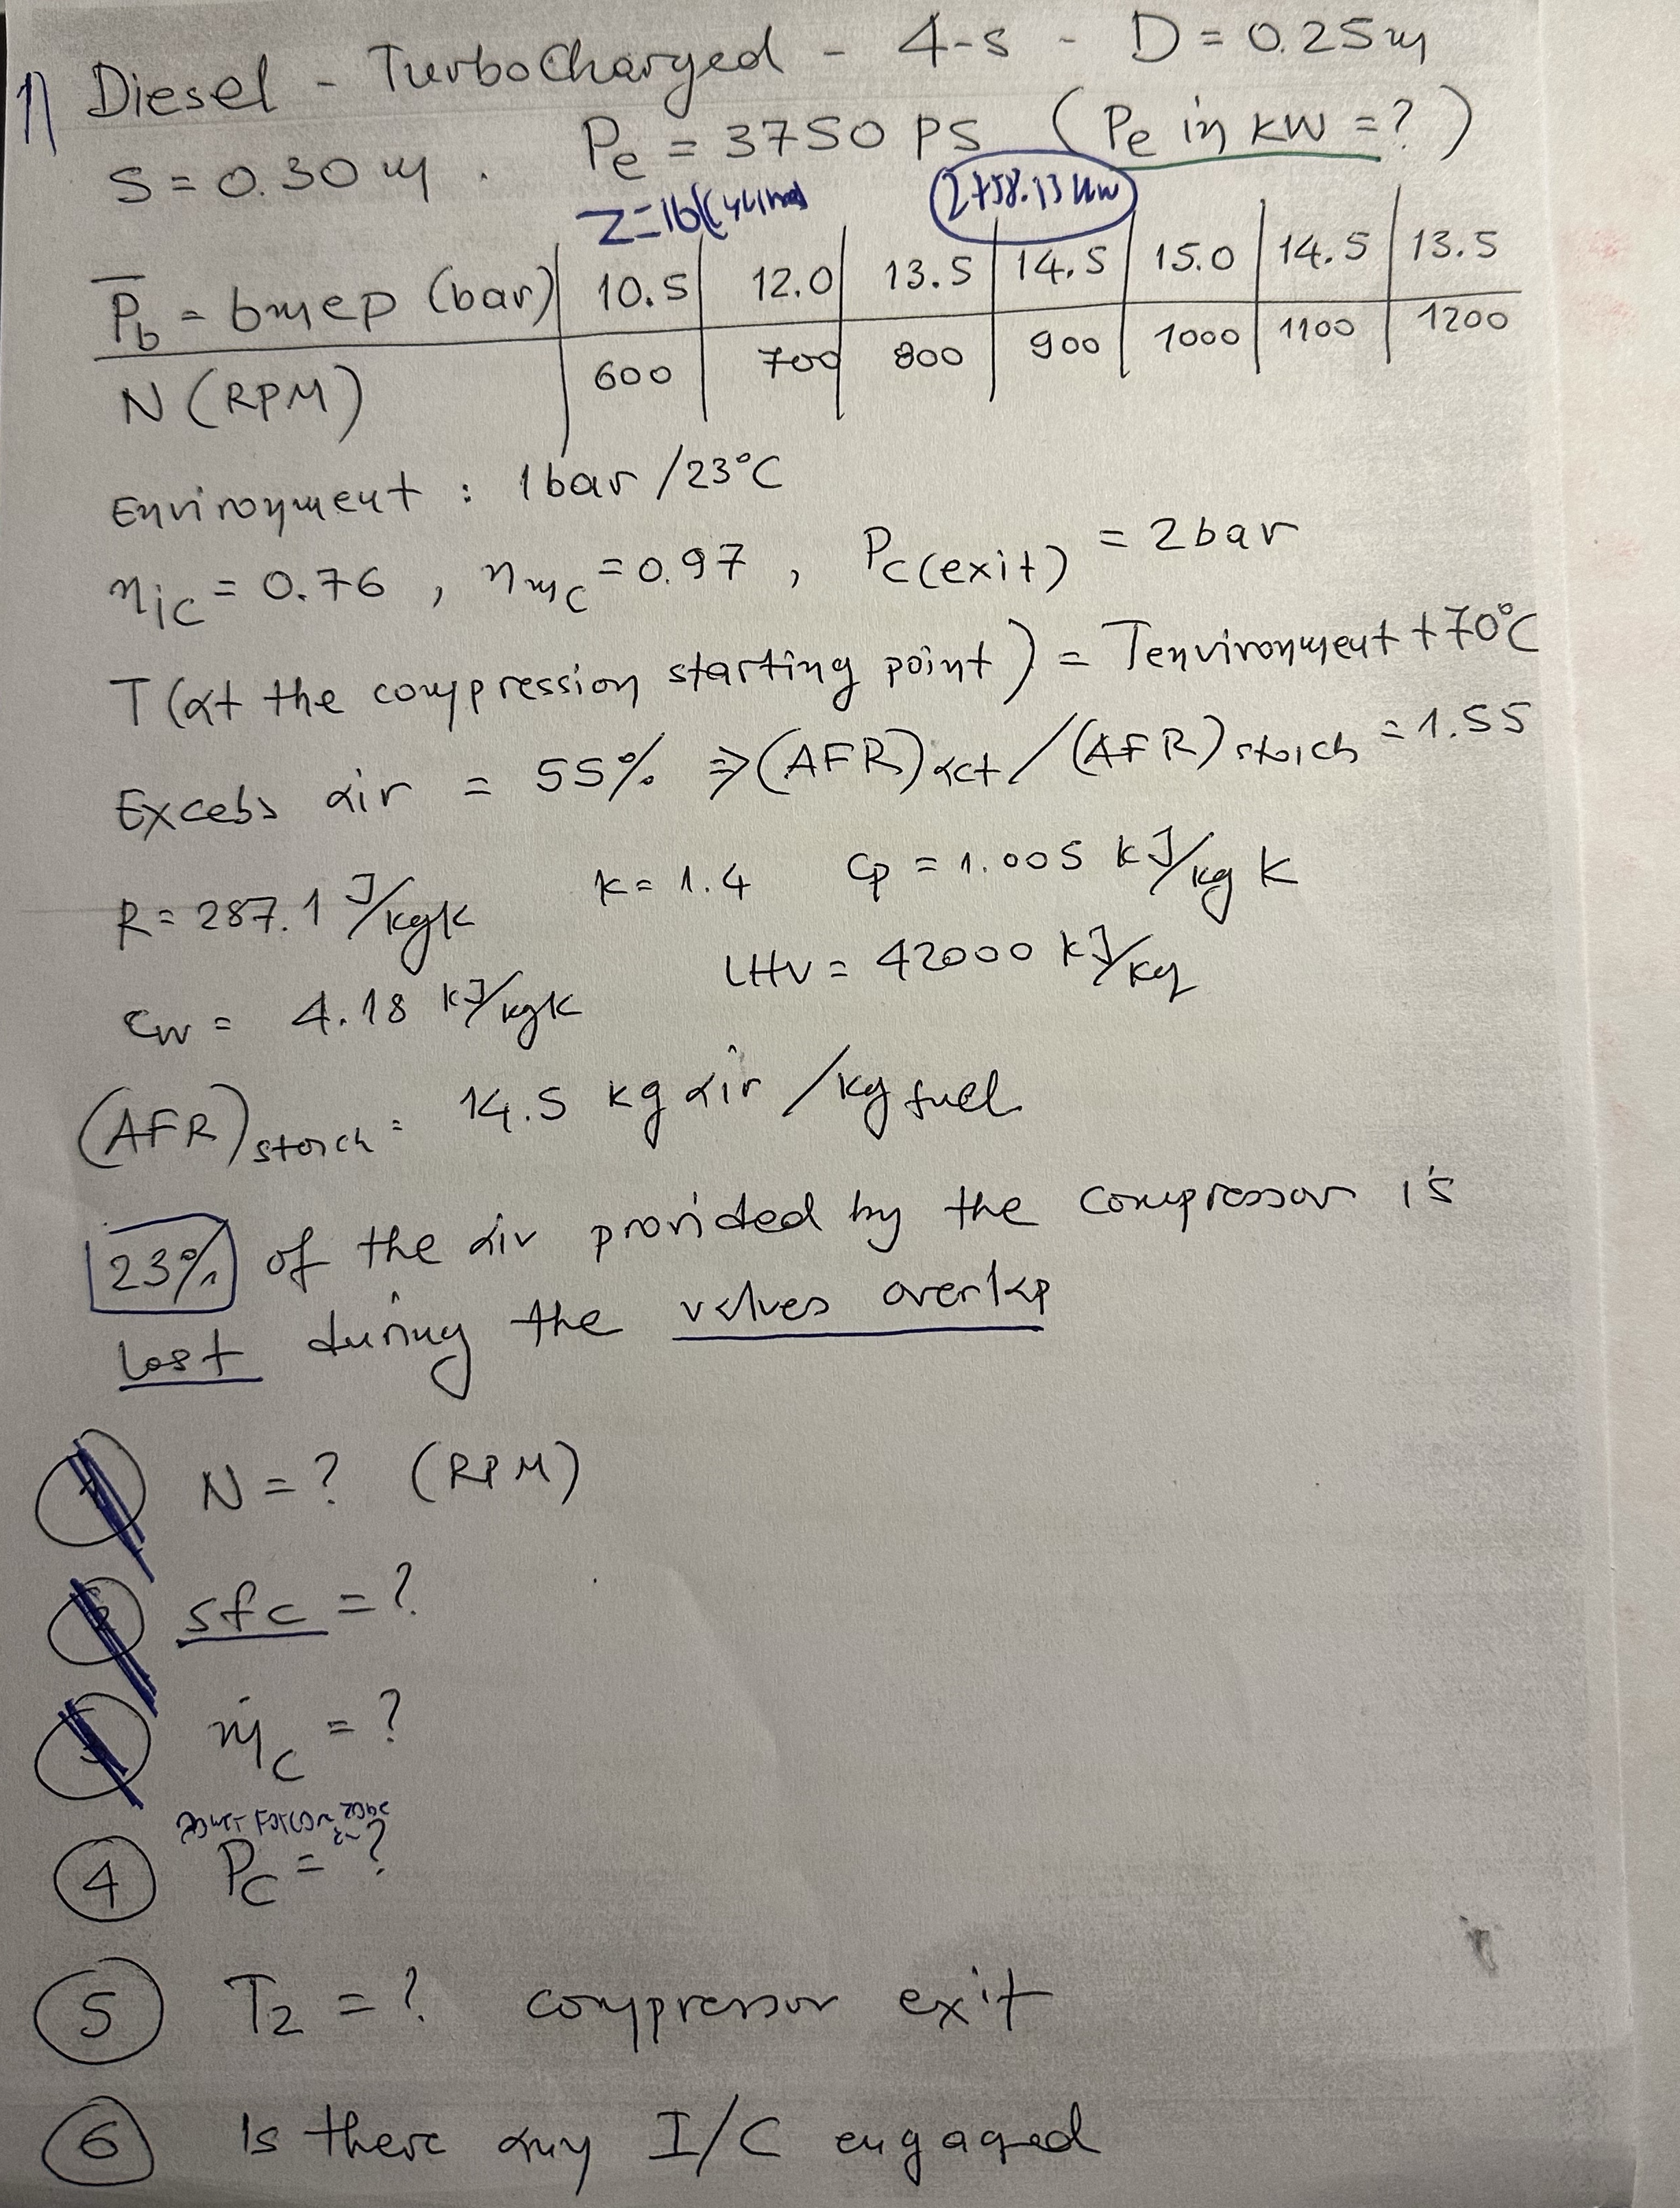 1) Diesel - TurboCharged - 4-s - D = 0.25m
S = 0.30 m . Pe = 3750 PS (Pe in kW = ?)
Z=16 2758.13 kW
P̅b = bmep (bar) 10.5 12.0 13.5 14.5 15.0 14.5 13.5
N (RPM) 600 700 800 900 1000 1100 1200
Environment : 1bar /23°C
ηic = 0.76 , ηmc = 0.97 , Pc(exit) = 2bar
T (at the compression starting point) = Tenvironment + 70°C
Excess air = 55% ⇒ (AFR)act / (AFR)stoich = 1.55
R = 287.1 J/kgK k = 1.4 Cp = 1.005 kJ/kg K
cw = 4.18 kJ/kgK LHV = 42000 kJ/kg
(AFR)stoich = 14.5 kg air /kg fuel
23% of the air provided by the compressor is
lost during the valves overlap
1 N = ? (RPM)
2 sfc = ?
3 ṁc = ?
4 Pc = ?
5 T2 = ? compressor exit
6 Is there any I/C engaged